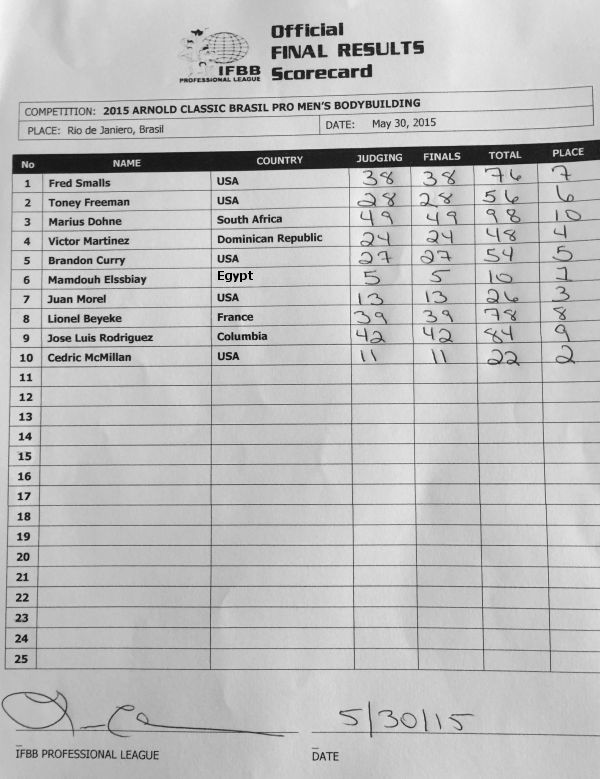 Official
FINAL RESULTS
IFBB Scorecard
PROFESSIONAL LEAGUE
COMPETITION: 2015 ARNOLD CLASSIC BRASIL PRO MEN'S BODYBUILDING
PLACE: Rio de Janiero, Brasil DATE: May 30, 2015
No NAME COUNTRY JUDGING FINALS TOTAL PLACE
1 Fred Smalls USA 38 38 76 7
2 Toney Freeman USA 28 28 56 6
3 Marius Dohne South Africa 49 49 98 10
4 Victor Martinez Dominican Republic 24 24 48 4
5 Brandon Curry USA 27 27 54 5
6 Mamdouh Elssbiay Egypt 5 5 10 1
7 Juan Morel USA 13 13 26 3
8 Lionel Beyeke France 39 39 78 8
9 Jose Luis Rodriguez Columbia 42 42 84 9
10 Cedric McMillan USA 11 11 22 2
11
12
13
14
15
16
17
18
19
20
21
22
23
24
25
5/30/15
IFBB PROFESSIONAL LEAGUE DATE